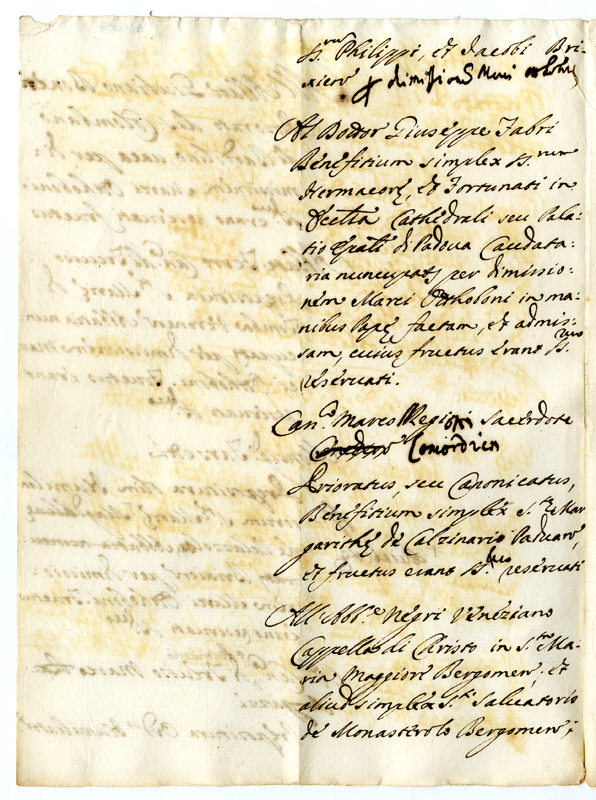 SS.rum Philippi, et Jacobi Bri-
xien
p dimission. Marci
Al Dottor Giuseppe Fabri
Benefitium simplex SS.rum
Hermacorę, et Fortunati in
Cathedrali seu Pala-
tio Epali di Padova Caudata-
ria nuncupat. per dimissio-
nem Marci Otthoboni in ma-
nibus Papę factam, et admis-
sam, cuius fructus erant SS.
reservati.
Can.o Marco Sacerdote
Concordien
Prioratus, seu Canonicatus,
Benefitium simplex S.tę Mar
garithę de Calzinario Paduan,
et fructus erant SS. reservati
All'Abb.e Negri Veneziano
Cappella di Christo in S.ta Ma-
ria Maggiore Bergomen; et
aliud simplex S.ti Salvatoris
de Monasterolo Bergomen;